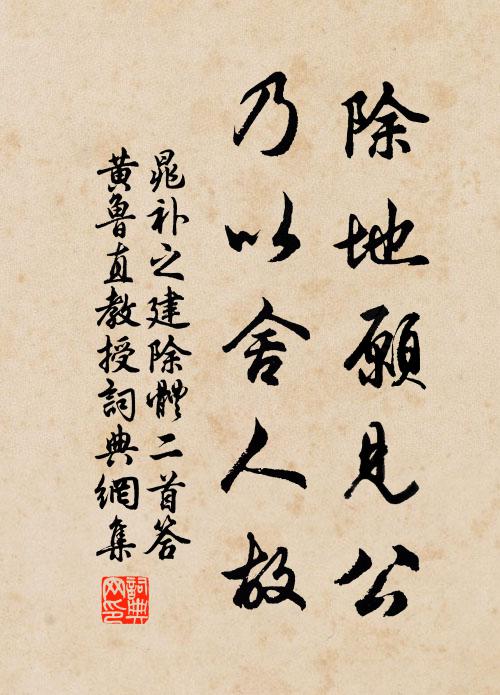 除地願見公
乃以舍人故
晁补之建除體二首答
黃魯直教授詞典網集
詞典网印